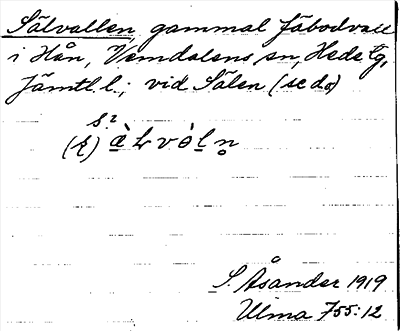 Sälvallen, gammal fäbodvall
i Hån, Vemdalens sn, Hede tg,
Jämtl. l.; vid Sälen (se do)
s.?
(ʂ) æ̀ L v ò l n̥
S. Åsander 1919
Ulma 755:12